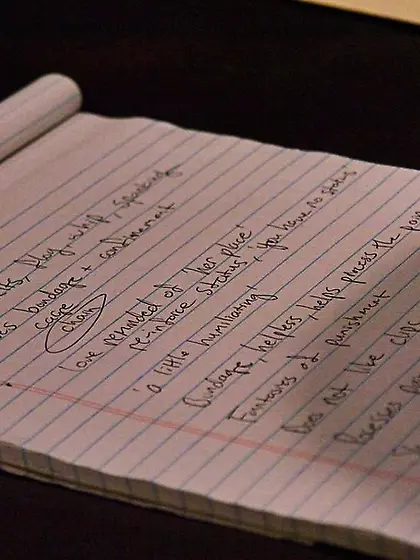 play-whip, spanking
bondage + confinement
cage
chain
love reminded of 'her place'
re-inforce status, 'you have no status
'a little humiliating'
Bondage, helpless, helps process the
Fantasies of punishment
Does not like clips
Posesses